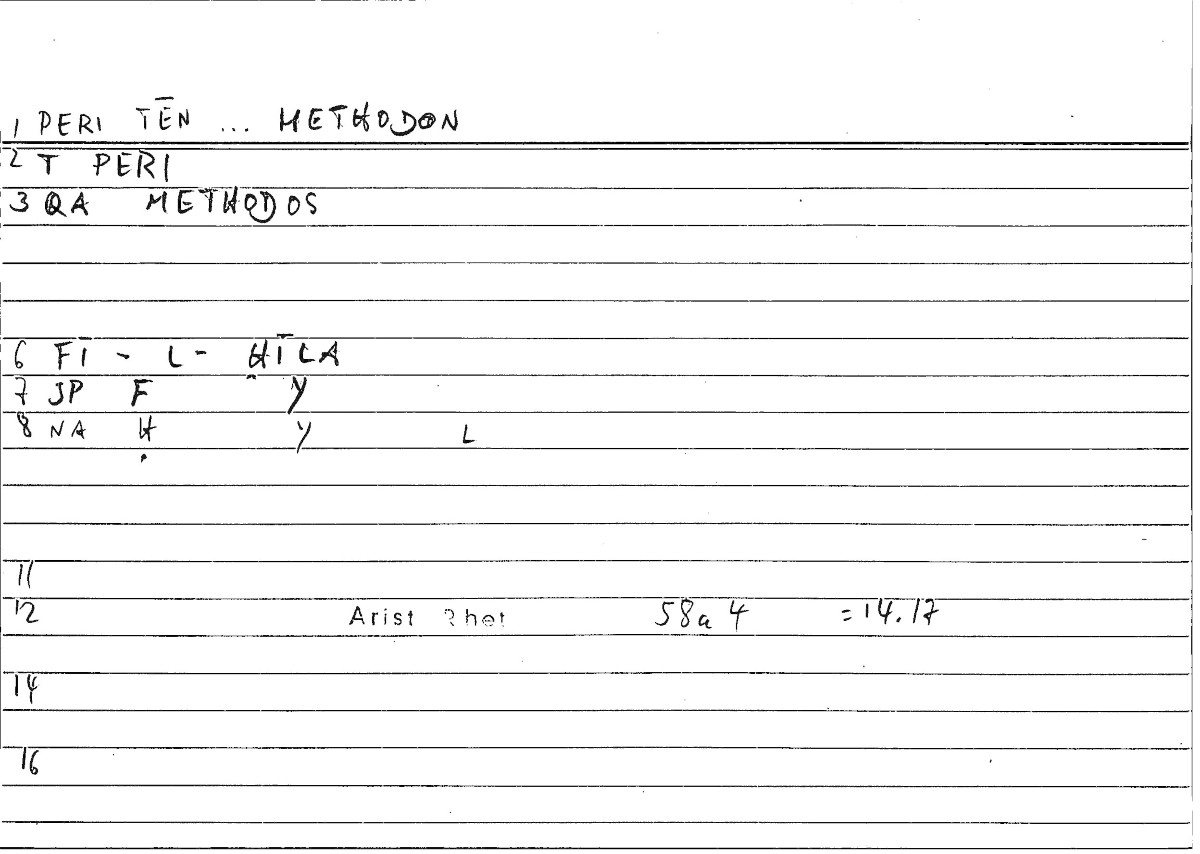 1 PERI TĒN ... METHODON
2 T PERI
3 QA METHODOS
6 FĪ - L - ḤĪLA
7 JP F Y
8 NA Ḥ Y L
11
12 Arist Rhet 58a 4 = 14.17
14
16